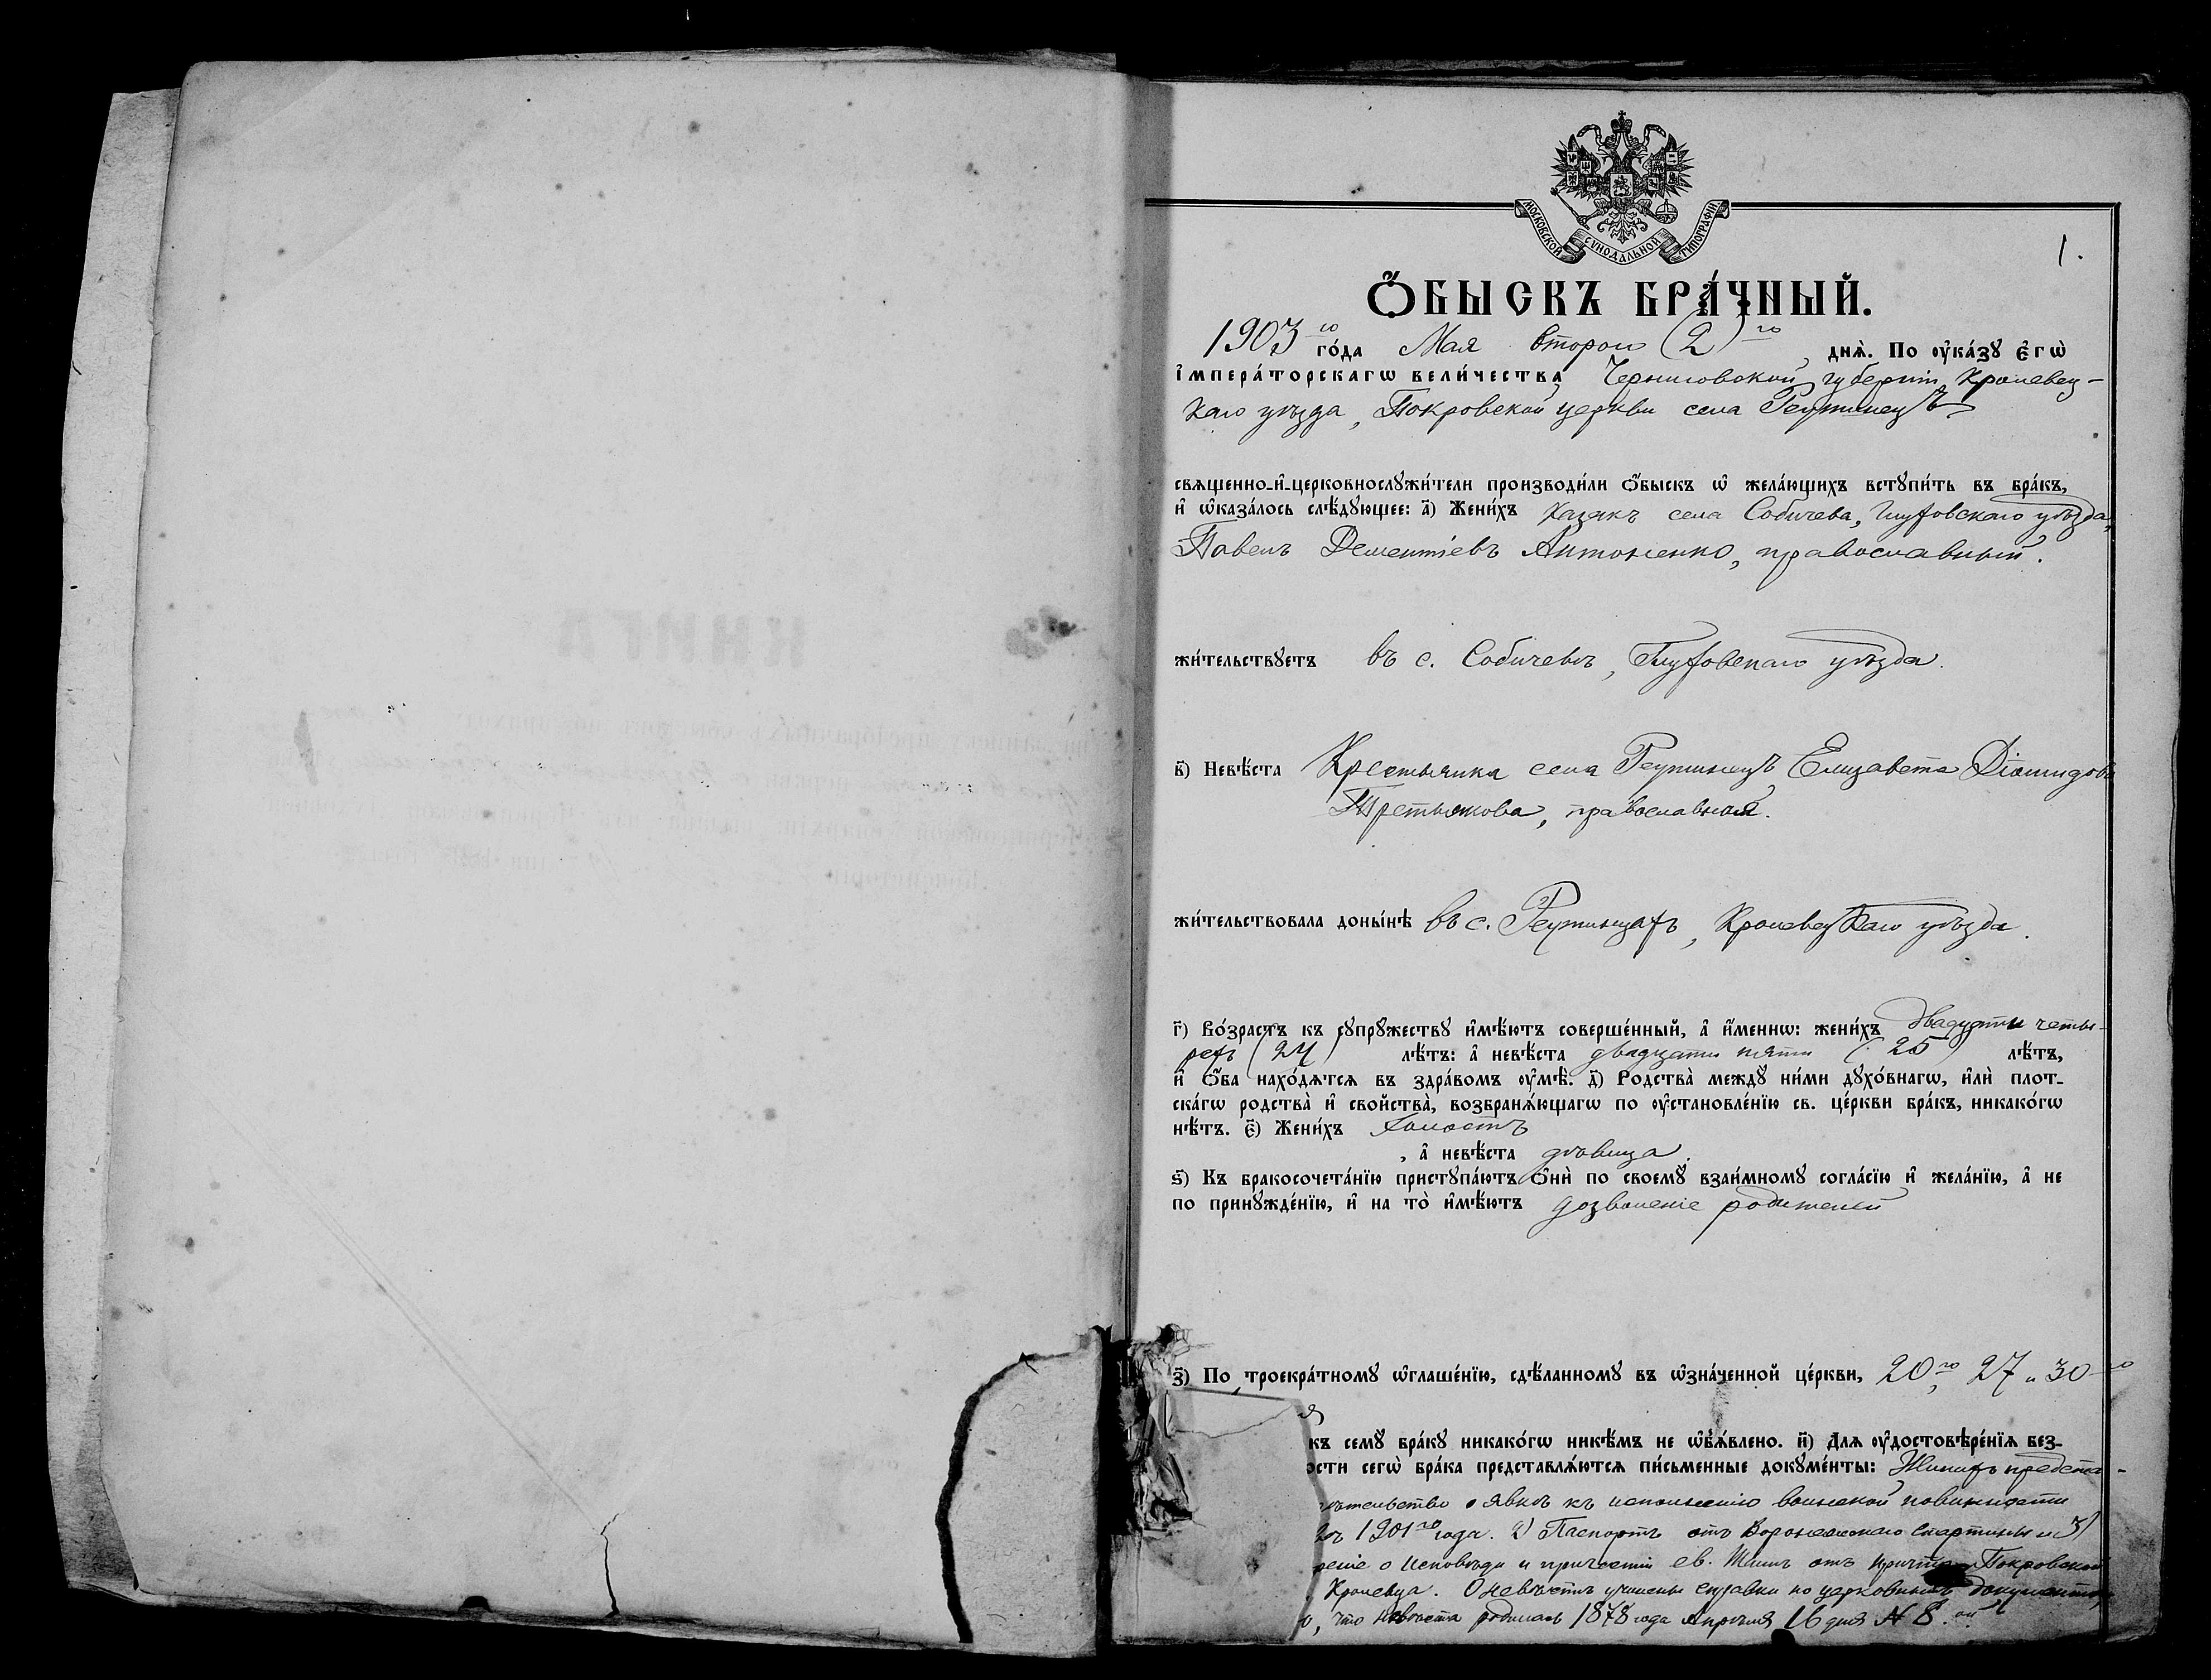 МОСКОВСКОЙ СѴНОДАЛЬНОЙ ТИПОГРАФІИ
1.
Ѻ҆БЫСКЪ БРА́ЧНЫЙ.
1903 го го́да Мая второго (2) го, днѧ̀. По ᲂу҆ка́зꙋ є҆гѡ̀
і҆мпера́торскагѡ вели́чества, Черниговской губерніи, Кролевец-
каго уѣзда, Покровской церкви села Реутинецъ
свѧщенно-и҆-церковнослꙋжи́тели производи́ли ѻ҆́быскъ ѡ҆ жела́ющихъ встꙋпи́ть въ бра́къ,
и҆ ѡ҆каза́лось слѣ́дꙋющее: а҃) Жени́хъ Казакъ села Собичева, Глуховскаго уѣзда,
Павелъ Дементіевъ Антоненко, православный.
жи́тельствꙋетъ въ с. Собичевѣ, Глуховскаго уѣзда.
в҃) Невѣ́ста Крестьянка села Реутинецъ Елизавета Діомидова
Третьякова, православная.
жи́тельствовала доны́нѣ въ с. Реутинцахъ, Кролевецкаго уѣзда.
г҃) Во́зрастъ къ сꙋпрꙋ́жествꙋ и҆мѣ́ютъ соверше́нный, а҆ и҆́меннѡ: жени́хъ двадцати четы-
рехъ (24) лѣ́тъ: а҆ невѣ́ста двадцати пяти (25) лѣ́тъ,
и҆ ѻ҆́ба нахо́дѧтсѧ въ здра́вомъ ᲂу҆мѣ̀. д҃) Родства̀ междꙋ̀ ни́ми дꙋхо́внагѡ, и҆лѝ плот-
ска́гѡ родства̀ и҆ сво́йства̀, возбранѧ́ющагѡ по ᲂу҆становле́нїю св. це́ркви бра́къ, никако́гѡ
нѣ́тъ. є҃) Жени́хъ холостъ
, а҆ невѣ́ста дѣвица.
ѕ҃) Къ бракосочета́нїю пристꙋпа́ютъ ѻ҆нѝ по своемꙋ̀ взаи́мномꙋ согла́сїю и҆ жела́нїю, а҆ не
по принꙋжде́нїю, и҆ на то̀ и҆мѣ́ютъ дозволеніе родителей
з҃) По троекра́тномꙋ ѡ҆глаше́нїю, сдѣ́ланномꙋ въ ѡ҆зна́ченной це́ркви, 20 го, 27 и 30 го
я
къ семꙋ̀ бра́кꙋ никако́гѡ никѣ́мъ не ѡ҆б̾ѧ́влено. и҃) Длѧ ᲂу҆достовѣре́нїѧ без-
ости сегѡ̀ бра́ка представлѧ́ютсѧ пи́сьменные докꙋме́нты: Женихъ предста-
ѣтельство о явкѣ къ исполненію воинской повинности
въ 1901 го года. 2) Паспортъ отъ Старшины и 3)
реніе о Исповѣди и причастіи св. Таинъ отъ причта Покровской
Кролевца. О невѣстѣ учинены справки по церковнымъ документамъ
о, что невѣста родилась 1878 года Апрѣля 16 дня № 8.
КНИГА